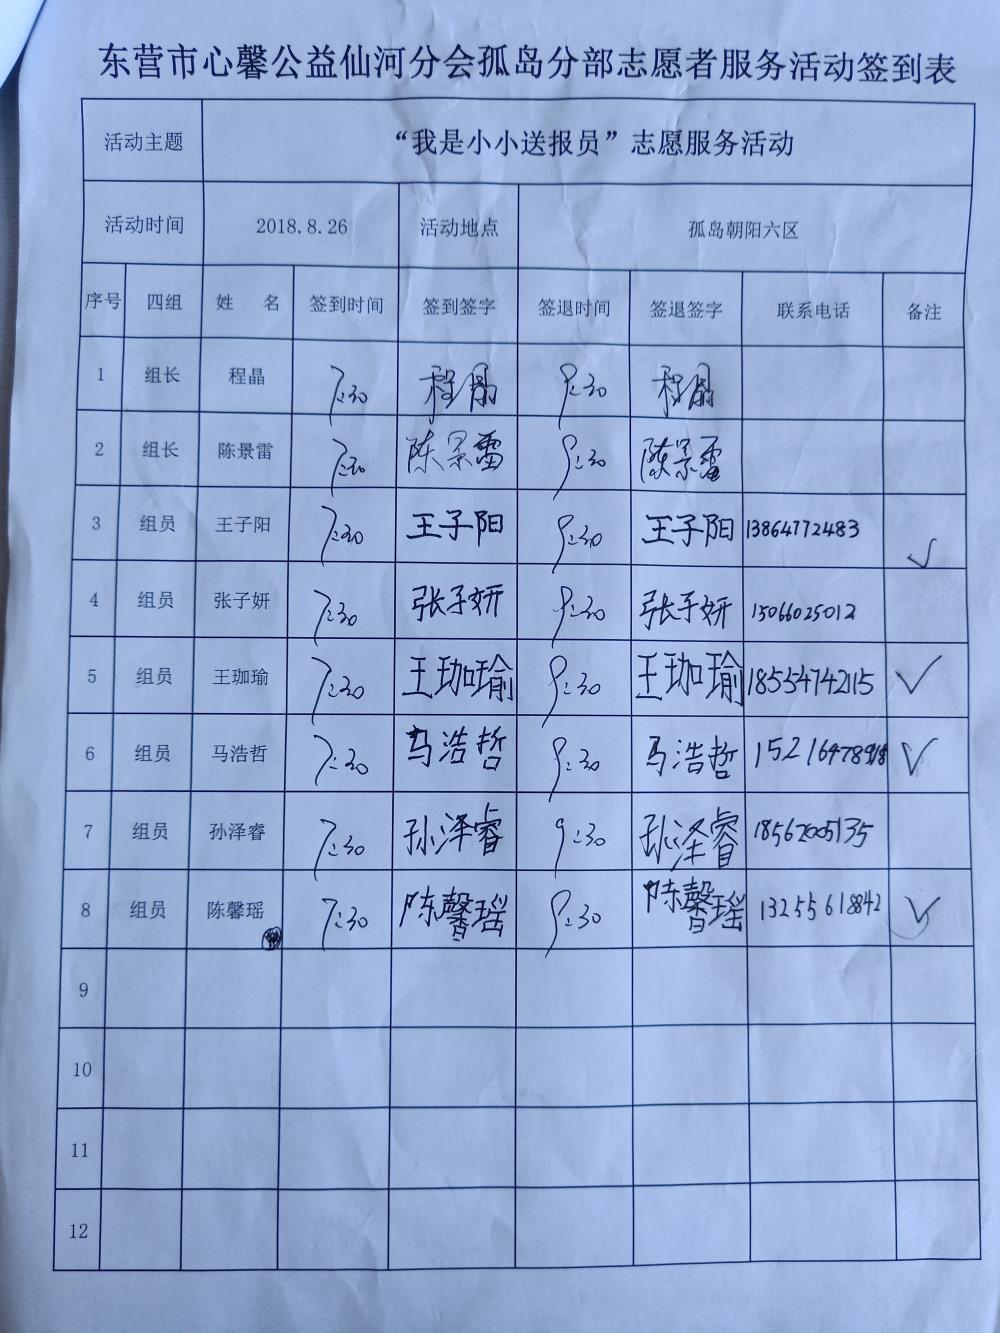 东营市心馨公益仙河分会孤岛分部志愿者服务活动签到表
活动主题 “我是小小送报员”志愿服务活动
活动时间 2018.8.26 活动地点 孤岛朝阳六区
序号 四组 姓 名 签到时间 签到签字 签退时间 签退签字 联系电话 备注
1 组长 程晶 7:30 程晶 9:30 程晶
2 组长 陈景雷 7:30 陈景雷 9:30 陈景雷
3 组员 王子阳 7:30 王子阳 9:30 王子阳 13864772483 √
4 组员 张子妍 7:30 张子妍 9:30 张子妍 15066025012
5 组员 王珈瑜 7:30 王珈瑜 9:30 王珈瑜 18554742115 √
6 组员 马浩哲 7:30 马浩哲 9:30 马浩哲 √
7 组员 孙泽睿 7:30 孙泽睿 9:30 孙泽睿 18562005135
8 组员 陈馨瑶 7:30 陈馨瑶 9:30 陈馨瑶 13255618842 √
9
10
11
12